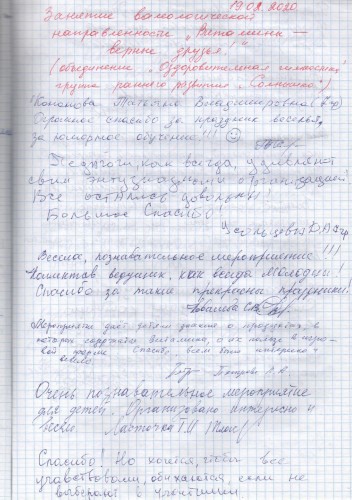 19.02.2020
Занятие валеологической
направленности „Витамины –
верные друзья!"
(объединение „Оздоровительная гимнастика"
группа раннего развития „Солнышко")
Кононова Татьяна Владимировна
Огромное спасибо за праздник веселья,
за юморное обучение!!!
Педагоги, как всегда, удивляют
своим энтузиазмом и организацией!
Все остались довольны!
Большое Спасибо!
Весело, познавательное мероприятие!!!
Коллектив ведущих, как всегда молодцы!
Спасибо за такие прекрасные праздники!
Мероприятие даёт детям знание о продуктах, в
которых содержатся витамины, о их пользе в игро-
вой форме. Спасибо, всем было интересно и
весело.
Очень познавательное мероприятие
для детей. Организовано интересно и
весело. Ласточка Т.И.
Спасибо! Но хочется, чтобы все
участвовали, обижаются, если не
выбирают в участники.